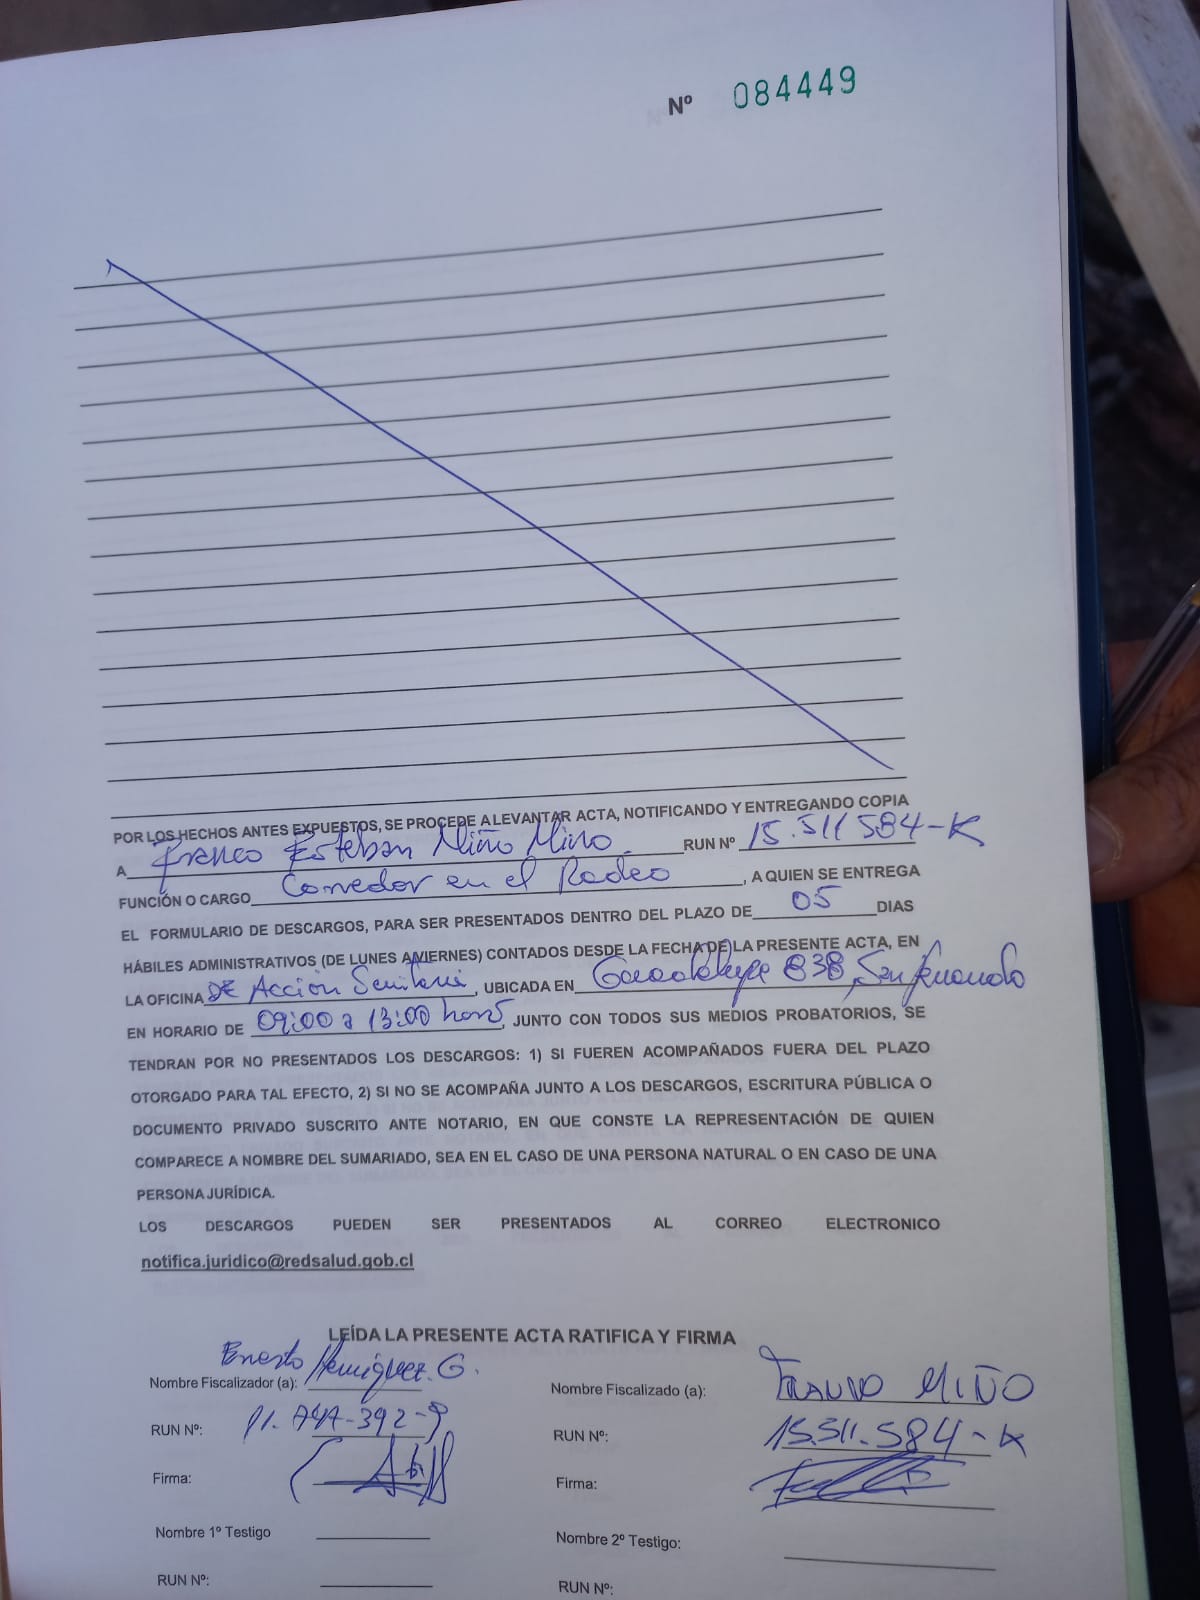 Nº 084449
POR LOS HECHOS ANTES EXPUESTOS, SE PROCEDE A LEVANTAR ACTA, NOTIFICANDO Y ENTREGANDO COPIA
A Franco Esteban Miño Miño. RUN Nº 15.511584-K
FUNCIÓN O CARGO Corredor en el Rodeo, A QUIEN SE ENTREGA
EL FORMULARIO DE DESCARGOS, PARA SER PRESENTADOS DENTRO DEL PLAZO DE 05 DIAS
HÁBILES ADMINISTRATIVOS (DE LUNES A VIERNES) CONTADOS DESDE LA FECHA DE LA PRESENTE ACTA, EN
LA OFICINA DE Acción Sanitaria, UBICADA EN Guadalupe 838, San fernando
EN HORARIO DE 09:00 a 13:00 hors, JUNTO CON TODOS SUS MEDIOS PROBATORIOS, SE
TENDRAN POR NO PRESENTADOS LOS DESCARGOS: 1) SI FUEREN ACOMPAÑADOS FUERA DEL PLAZO
OTORGADO PARA TAL EFECTO, 2) SI NO SE ACOMPAÑA JUNTO A LOS DESCARGOS, ESCRITURA PÚBLICA O
DOCUMENTO PRIVADO SUSCRITO ANTE NOTARIO, EN QUE CONSTE LA REPRESENTACIÓN DE QUIEN
COMPARECE A NOMBRE DEL SUMARIADO, SEA EN EL CASO DE UNA PERSONA NATURAL O EN CASO DE UNA
PERSONA JURÍDICA.
LOS DESCARGOS PUEDEN SER PRESENTADOS AL CORREO ELECTRONICO
notifica.juridico@redsalud.gob.cl
LEÍDA LA PRESENTE ACTA RATIFICA Y FIRMA
Nombre Fiscalizador (a): Ernesto Henriquez. G.
Nombre Fiscalizado (a): FRANCO MIÑO
RUN Nº:
RUN Nº: 15.511.584-K
Firma:
Firma:
Nombre 1º Testigo
Nombre 2º Testigo:
RUN Nº:
RUN Nº: